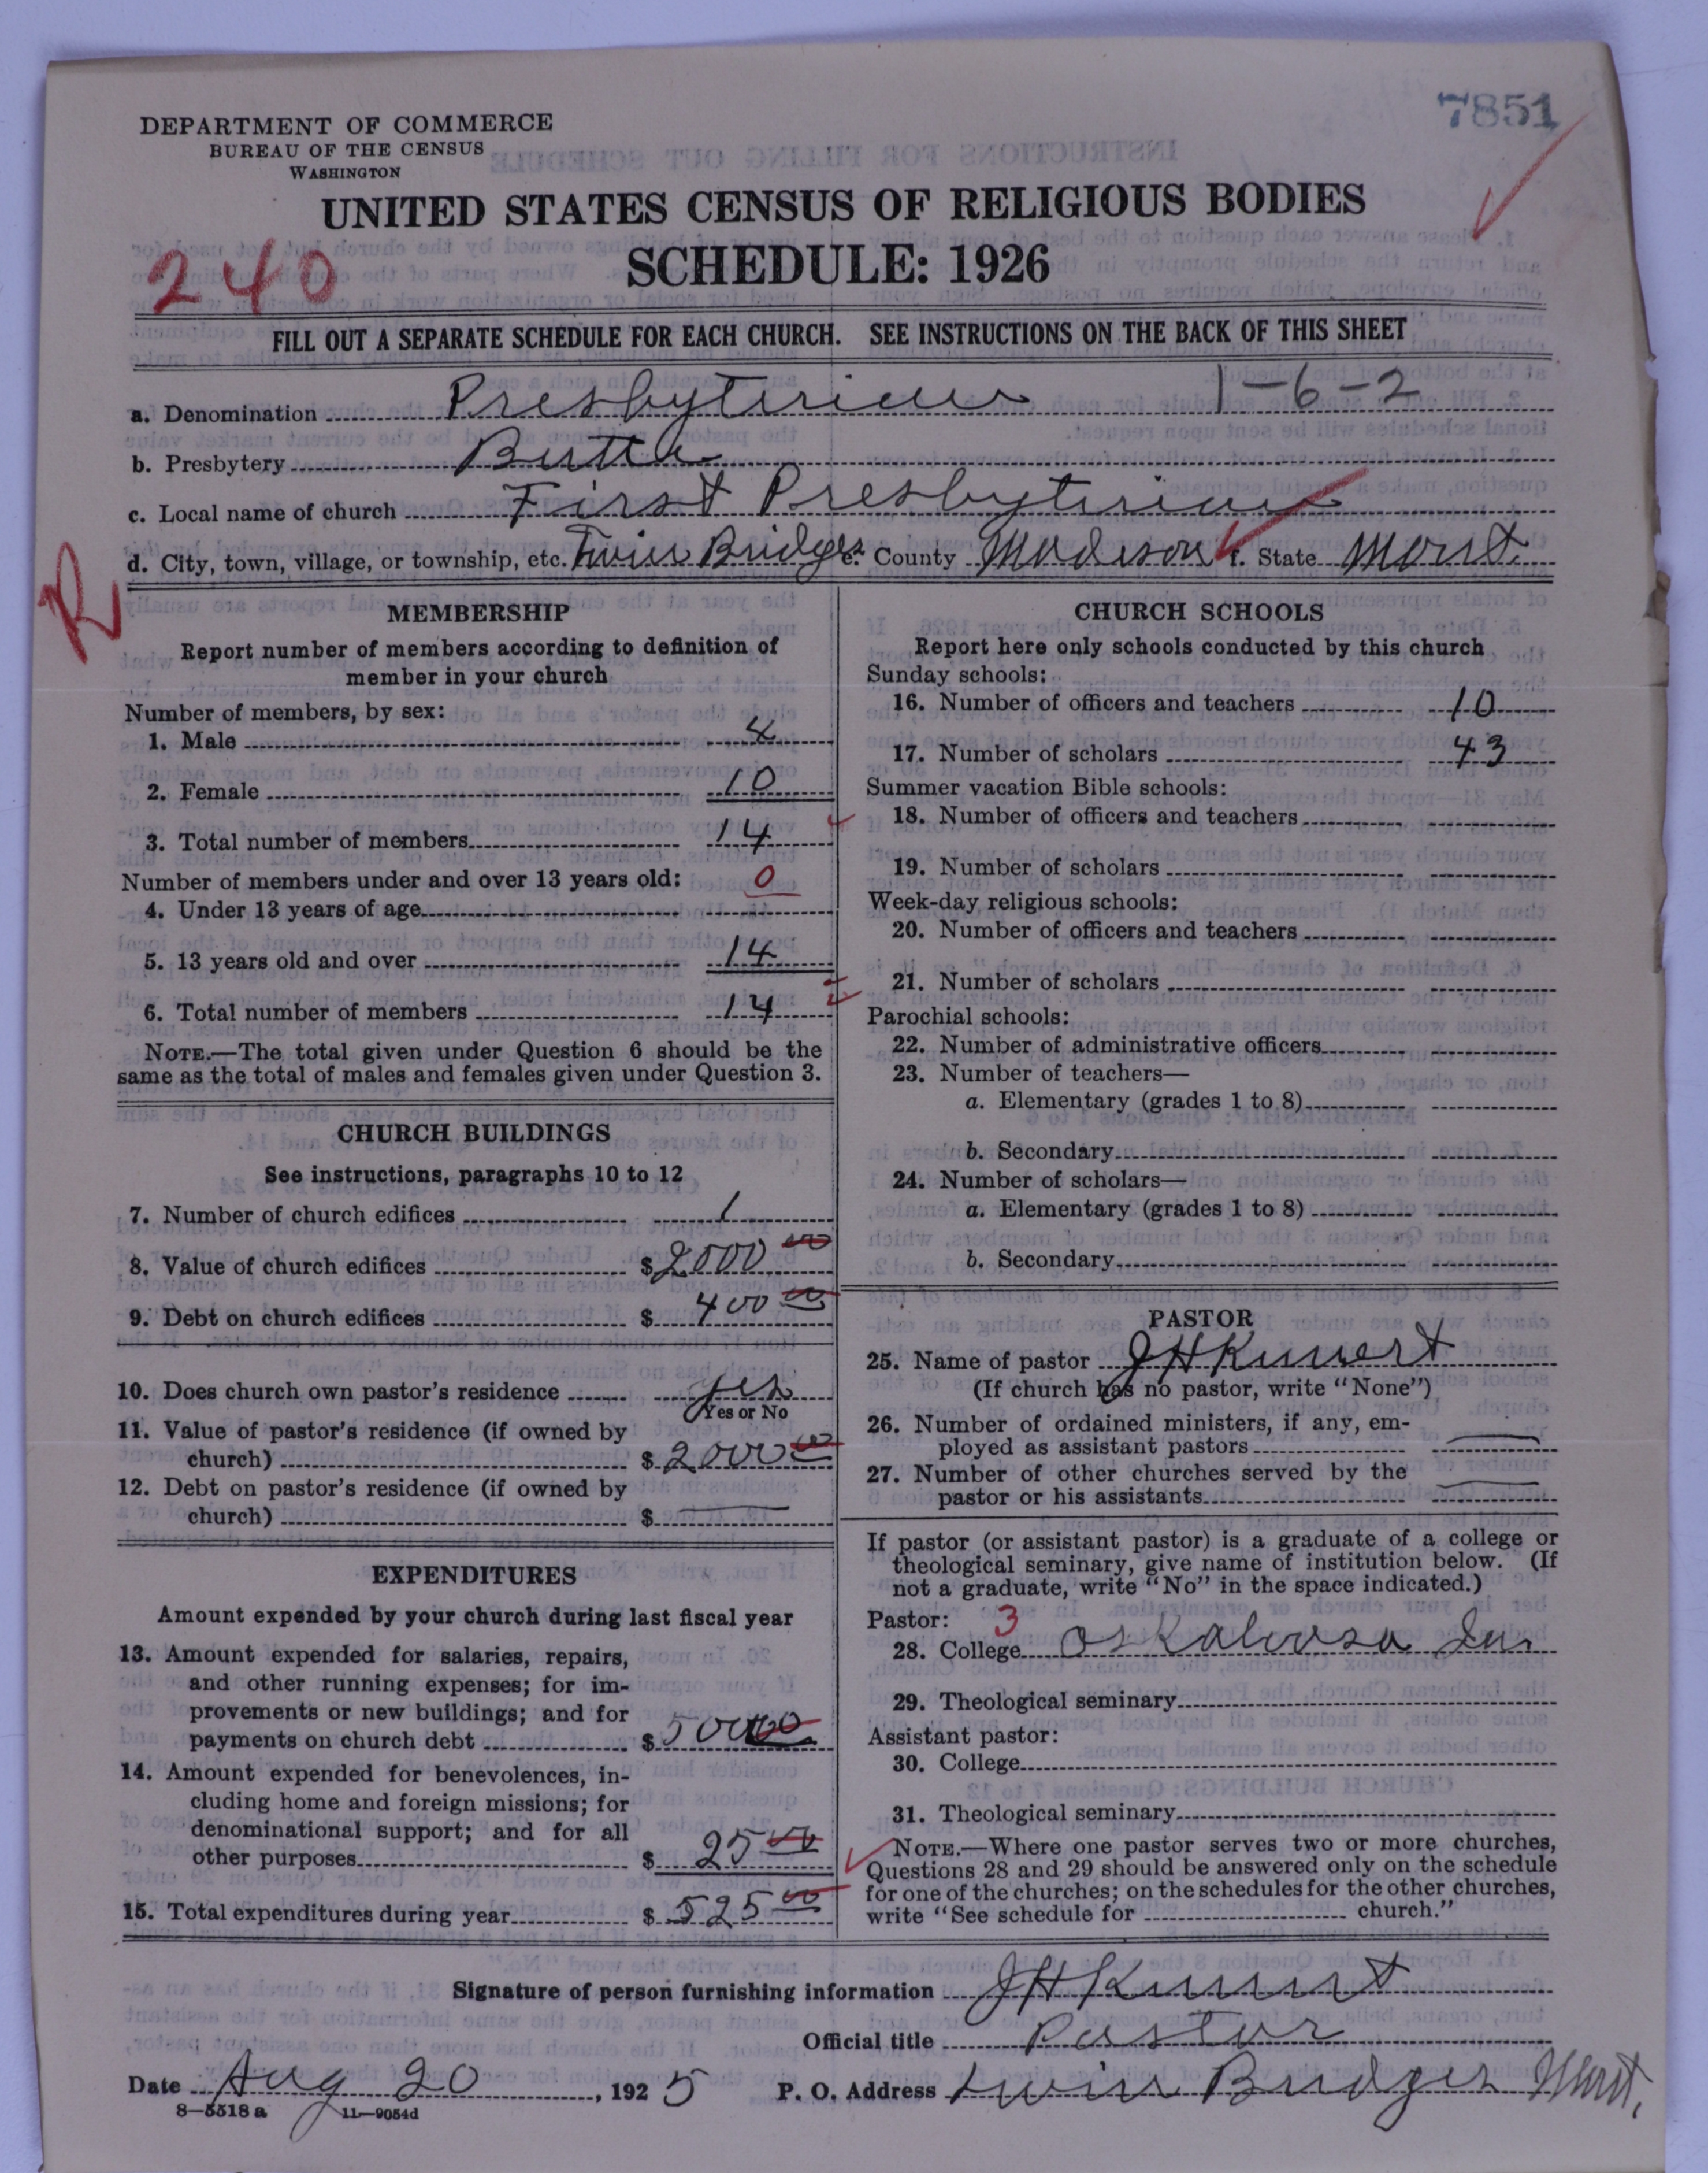 7851
DEPARTMENT OF COMMERCE
BUREAU OF THE CENSUS
WASHINGTON
UNITED STATES CENSUS OF RELIGIOUS BODIES
240
SCHEDULE: 1926
FILL OUT A SEPARATE SCHEDULE FOR EACH CHURCH. SEE INSTRUCTIONS ON THE BACK OF THIS SHEET
a. Denomination Presbyterian 1-6-2
b. Presbytery Butte
c. Local name of church First Presbyterian
d. City, town, village, or township, etc. Twin Bridges e. County Madison f. State Mont.
R
MEMBERSHIP
Report number of members according to definition of
member in your church
Number of members, by sex:
1. Male 4
2. Female 10
3. Total number of members 14
Number of members under and over 13 years old: 0
4. Under 13 years of age
5. 13 years old and over 14
6. Total number of members 14
NOTE.—The total given under Question 6 should be the
same as the total of males and females given under Question 3.
CHURCH BUILDINGS
See instructions, paragraphs 10 to 12
7. Number of church edifices 1
8. Value of church edifices $2000 00
9. Debt on church edifices $ 400 00
10. Does church own pastor's residence yes
Yes or No
11. Value of pastor's residence (if owned by
church) $ 2000 00
12. Debt on pastor's residence (if owned by
church) $
EXPENDITURES
Amount expended by your church during last fiscal year
13. Amount expended for salaries, repairs,
and other running expenses; for im-
provements or new buildings; and for
payments on church debt $ 500 00
14. Amount expended for benevolences, in-
cluding home and foreign missions; for
denominational support; and for all
other purposes $ 25 00
15. Total expenditures during year $ 525 00
CHURCH SCHOOLS
Report here only schools conducted by this church
Sunday schools:
16. Number of officers and teachers 10
17. Number of scholars 43
Summer vacation Bible schools:
18. Number of officers and teachers
19. Number of scholars
Week-day religious schools:
20. Number of officers and teachers
21. Number of scholars
Parochial schools:
22. Number of administrative officers
23. Number of teachers—
a. Elementary (grades 1 to 8)
b. Secondary
24. Number of scholars—
a. Elementary (grades 1 to 8)
b. Secondary
PASTOR
25. Name of pastor J H Kunert
(If church has no pastor, write "None")
26. Number of ordained ministers, if any, em-
ployed as assistant pastors
27. Number of other churches served by the
pastor or his assistants
If pastor (or assistant pastor) is a graduate of a college or
theological seminary, give name of institution below. (If
not a graduate, write "No" in the space indicated.)
Pastor: 3
28. College Oskaloosa
29. Theological seminary
Assistant pastor:
30. College
31. Theological seminary
NOTE.—Where one pastor serves two or more churches,
Questions 28 and 29 should be answered only on the schedule
for one of the churches; on the schedules for the other churches,
write "See schedule for church."
Signature of person furnishing information J H Kunert
Official title Pastor
Date Aug 20, 1925 P. O. Address Twin Bridges Mont.
8—5518 a 11—9054d